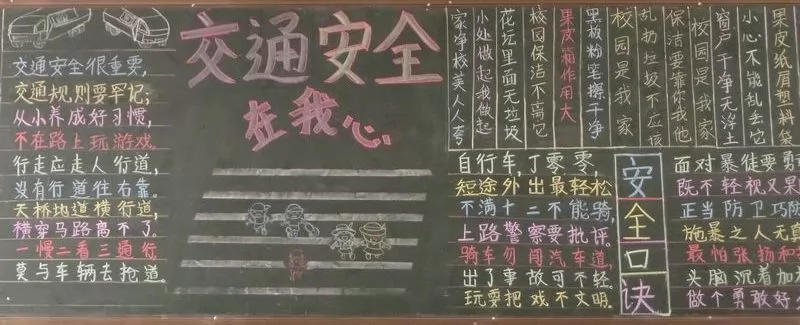 交通安全很重要,
交通规则要牢记;
从小养成好习惯,
不在路上玩游戏.
行走应走人行道,
没有行道往右靠.
天桥地道横行道,
横穿马路离不了.
一慢二看三通行
莫与车辆去抢道.
交通安全
在我心
果皮纸屑塑料袋
小心不能乱丢它
窗户干净无浮土
校园是我家
保洁要靠你我他
乱扔垃圾不应该
校园是我家
黑板粉笔擦干净
果皮箱作用大
校园保洁不离它
花坛里面无垃圾
小处做起我做起
家净校美人人夸
自行车,丁零零,
短途外出最轻松
不满十二不能骑,
上路警察要批评。
骑车勿闯汽车道,
出了事故可不轻.
玩耍把戏不文明.
安全口诀
面对暴徒要勇
既不轻视又果
正当防卫巧防
施暴之人无真
最怕张扬和
头脑沉着加
做个勇敢好